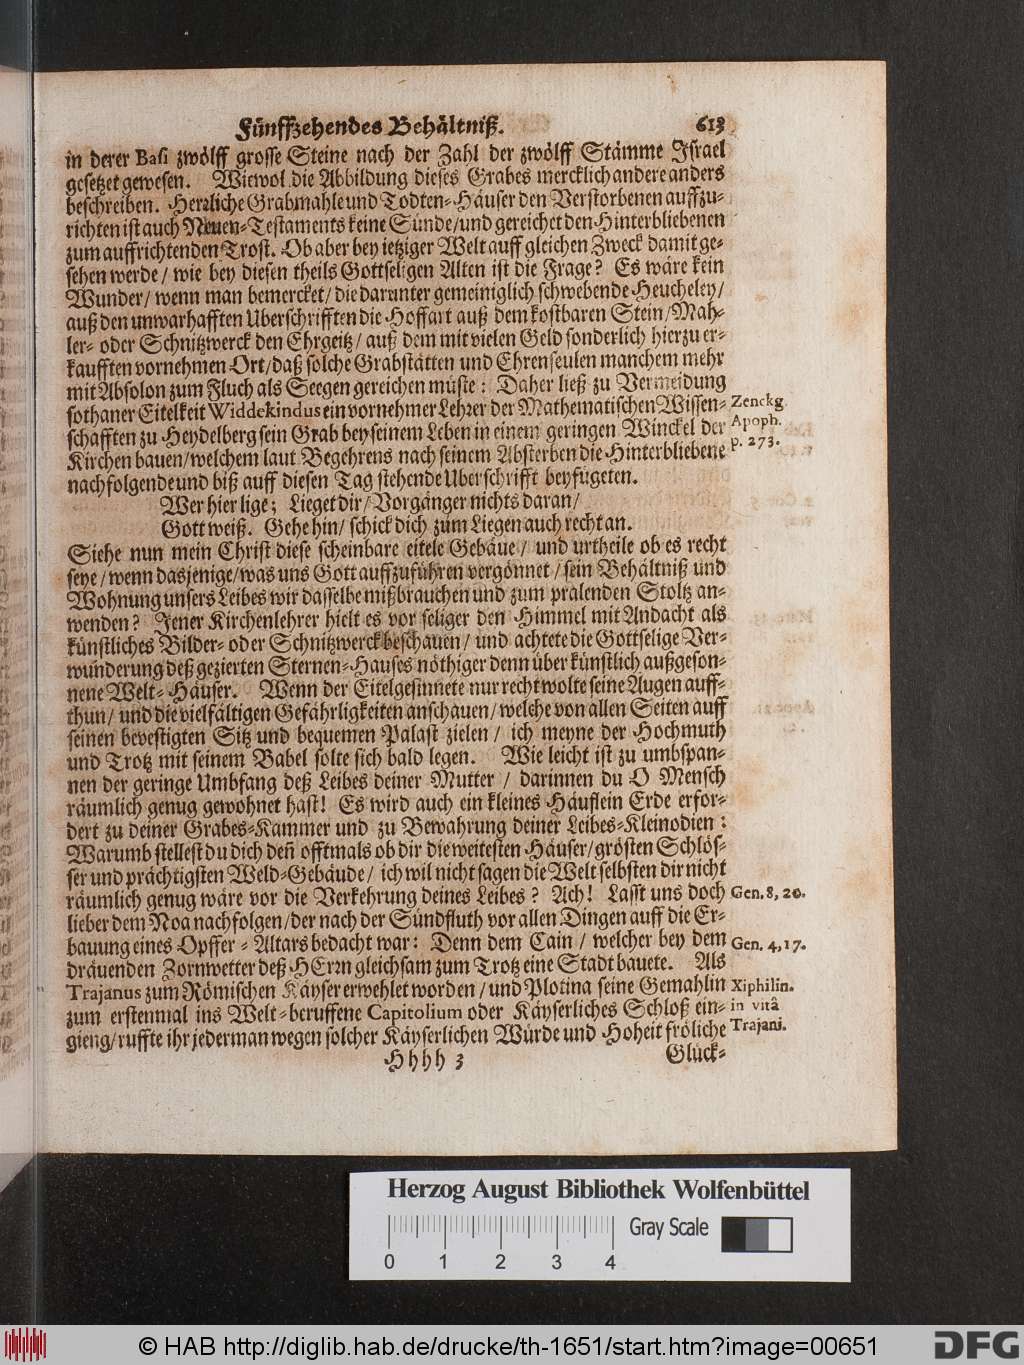 Fünffzehendes Behältniß. 613
in derer Basi zwölff grosse Steine nach der Zahl der zwölff Stämme Israel
gesetzet gewesen. Wiewol die Abbildung dieses Grabes mercklich andere anders
beschreiben. Herrliche Grabmahle und Todten-Häuser den Verstorbenen auffzu-
richten ist auch Neuen-Testaments keine Sünde/ und gereichet den Hinterbliebenen
zum auffrichtenden Trost. Ob aber bey ietziger Welt auff gleichen Zweck damit ge-
sehen werde/ wie bey diesen theils Gottseligen Alten ist die Frage? Es wäre kein
Wunder/ wenn man bemercket/ die darunter gemeiniglich schwebende Heucheley/
auß den unwarhafften Uberschrifften die Hoffart auß dem kostbaren Stein/ Mah-
ler- oder Schnitzwerck den Ehrgeitz/ auß dem mit vielen Geld sonderlich hierzu er-
kaufften vornehmen Ort/ daß solche Grabstätten und Ehrenseulen manchem mehr
mit Absolon zum Fluch als Seegen gereichen müste: Daher ließ zu Vermeidung
sothaner Eitelkeit Widdekindus ein vornehmer Lehrer der Mathematischen Wissen-
schafften zu Heydelberg sein Grab bey seinem Leben in einem geringen Winckel der
Kirchen bauen/ welchem laut Begehrens nach seinem Absterben die Hinterbliebene
nachfolgende und biß auff diesen Tag stehende Uberschrifft beyfügeten.
Zenckg.
Apoph.
p. 273.
Wer hier lige; Lieget dir/ Vorgänger nichts daran/
Gott weiß. Gehe hin/ schick dich zum Liegen auch recht an.
Siehe nun mein Christ diese scheinbare eitele Gebäue/ und urtheile ob es recht
seye/ wenn dasjenige/ was uns Gott auffzuführen vergönnet/ sein Behältniß und
Wohnung unsers Leibes wir dasselbe mißbrauchen und zum pralenden Stoltz an-
wenden? Jener Kirchenlehrer hielt es vor seliger den Himmel mit Andacht als
künstliches Bilder- oder Schnitzwerck beschauen/ und achtete die Gottselige Ver-
wunderung deß gezierten Sternen-Hauses nöthiger denn über künstlich außgeson-
nene Welt-Häuser. Wenn der Eitelgesinnete nur recht wolte seine Augen auff-
thun/ und die vielfältigen Gefährligkeiten anschauen/ welche von allen Seiten auff
seinen bevestigten Sitz und bequemen Palast zielen/ ich meyne der Hochmuth
und Trotz mit seinem Babel solte sich bald legen. Wie leicht ist zu umbspan-
nen der geringe Umbfang deß Leibes deiner Mutter/ darinnen du O Mensch
räumlich genug gewohnet hast! Es wird auch ein kleines Häuflein Erde erfor-
dert zu deiner Grabes-Kammer und zu Bewahrung deiner Leibes-Kleinodien:
Warumb stellest du dich deñ offtmals ob dir die weitesten Häuser/ grösten Schlös-
ser und prächtigsten Weld-Gebäude/ ich wil nicht sagen die Welt selbsten dir nicht
räumlich genug wäre vor die Verkehrung deines Leibes? Ach! Lasst uns doch
lieber dem Noa nachfolgen/ der nach der Sündfluth vor allen Dingen auff die Er-
bauung eines Opffer-Altars bedacht war: Denn dem Cain/ welcher bey dem
dräuenden Zornwetter deß HErrn gleichsam zum Trotz eine Stadt bauete. Als
Trajanus zum Römischen Käyser erwehlet worden/ und Plotina seine Gemahlin
zum erstenmal ins Welt-beruffene Capitolium oder Käyserliches Schloß ein-
gieng/ ruffte ihr jederman wegen solcher Käyserlichen Würde und Hoheit fröliche
Gen. 8, 20.
Gen. 4, 17.
Xiphilin.
in vitâ
Trajani.
Hhhh 3 Glück-
Herzog August Bibliothek Wolfenbüttel
Gray Scale
0 1 2 3 4
© HAB http://diglib.hab.de/drucke/th-1651/start.htm?image=00651
DFG